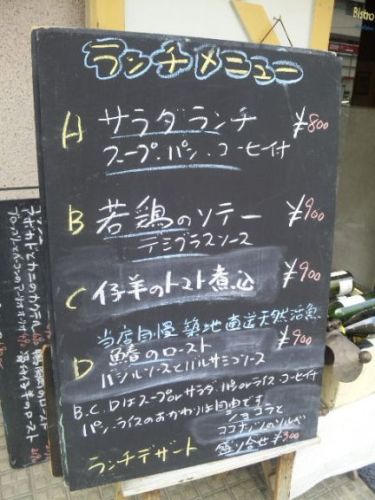 ランチメニュー
A サラダランチ ¥800
スープ・パン・コーヒー付
B 若鶏のソテー ¥900
デミグラスソース
C 仔羊のトマト煮込 ¥900
当店自慢 築地直送天然活魚
D 鱸のロースト ¥900
バジルソースとバルサミコソース
B.C.Dはスープorサラダ、パンorライス・コーヒー付
パン・ライスのおかわりは自由です
ランチデザート
ショコラと
ココナッツのソルベ
盛り合せ ¥300
Bistro